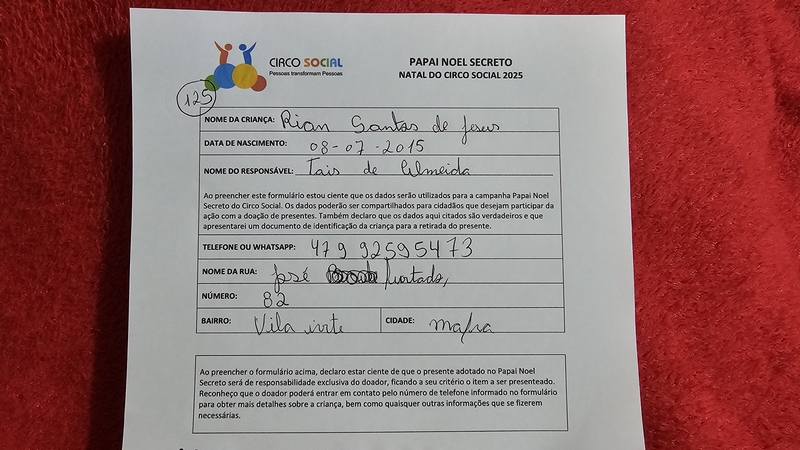 CIRCO SOCIAL
Pessoas transformam Pessoas
PAPAI NOEL SECRETO
NATAL DO CIRCO SOCIAL 2025
125
NOME DA CRIANÇA: Rian Santos de Jesus
DATA DE NASCIMENTO: 08-07-2015
NOME DO RESPONSÁVEL: Tais de Almeida
Ao preencher este formulário estou ciente que os dados serão utilizados para a campanha Papai Noel
Secreto do Circo Social. Os dados poderão ser compartilhados para cidadãos que desejam participar da
ação com a doação de presentes. Também declaro que os dados aqui citados são verdadeiros e que
apresentarei um documento de identificação da criança para a retirada do presente.
TELEFONE OU WHATSAPP: 47 9 92595473
NOME DA RUA: José furtado,
NÚMERO: 82
BAIRRO: Vila ivte CIDADE: mafra
Ao preencher o formulário acima, declaro estar ciente de que o presente adotado no Papai Noel
Secreto será de responsabilidade exclusiva do doador, ficando a seu critério o item a ser presenteado.
Reconheço que o doador poderá entrar em contato pelo número de telefone informado no formulário
para obter mais detalhes sobre a criança, bem como quaisquer outras informações que se fizerem
necessárias.